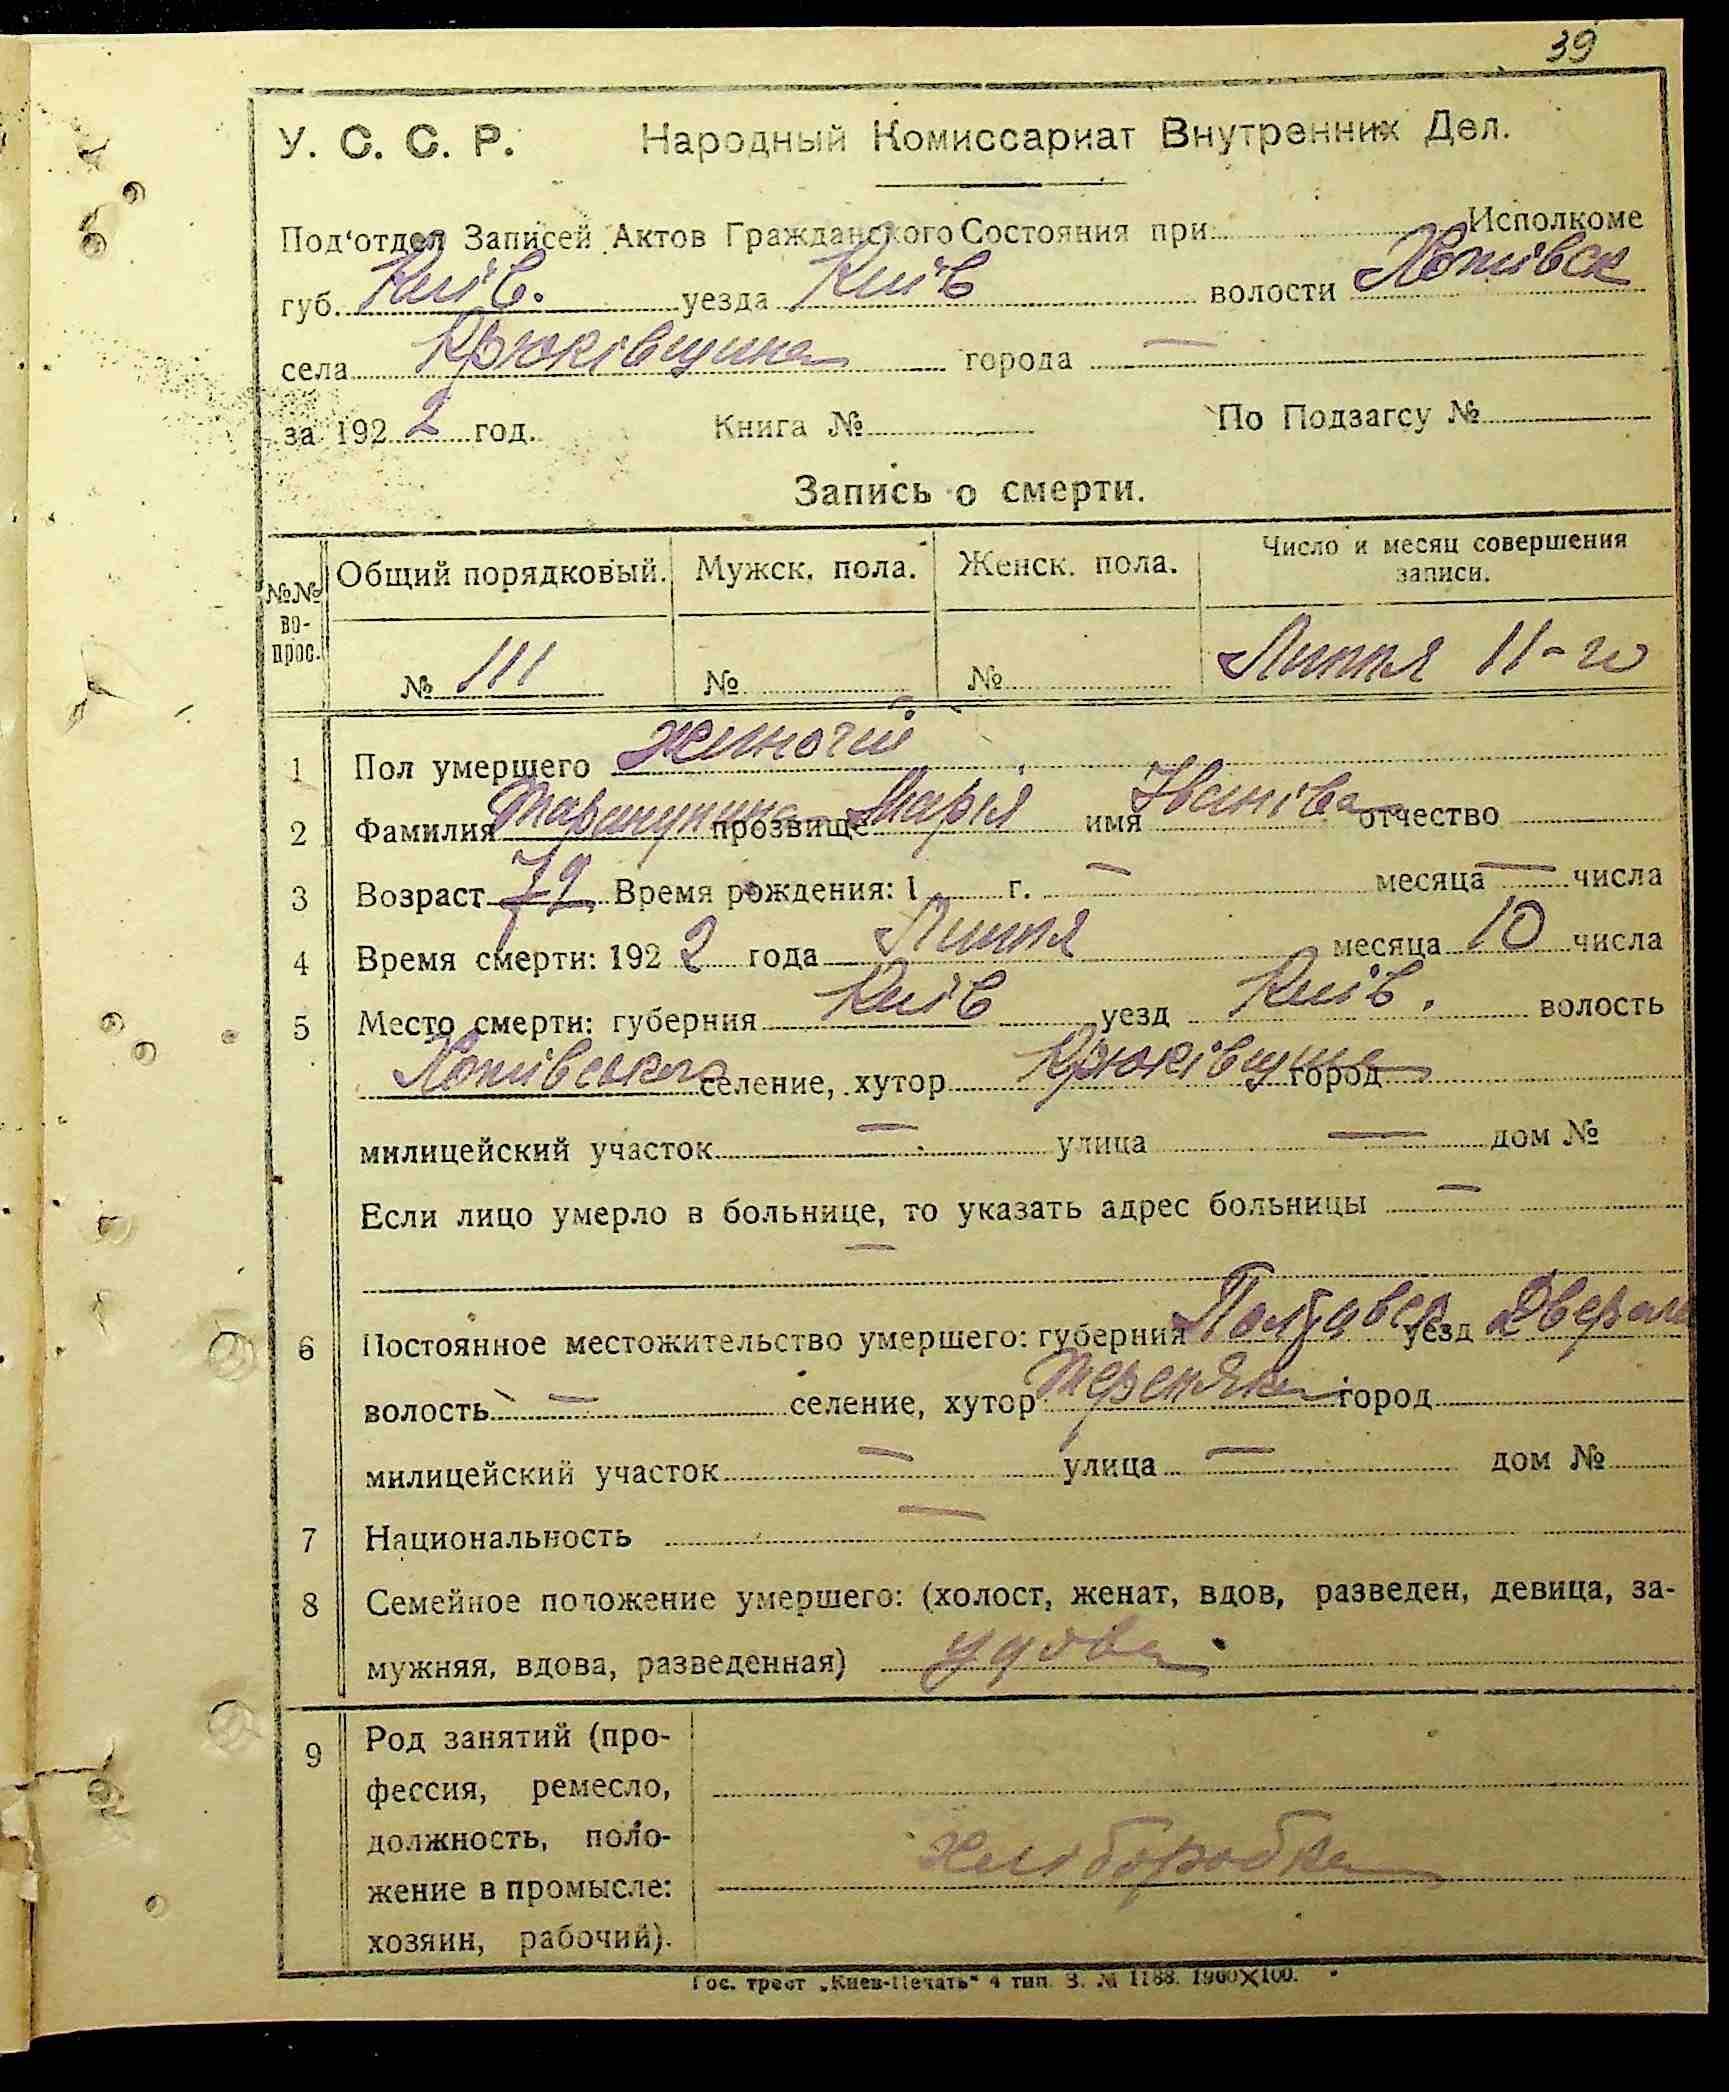 39
У. С. С. Р. Народный Комиссариат Внутренних Дел.
Под'отдел Записей Актов Гражданского Состояния при Исполкоме
губ. Київ. уезда Київ волости Хотівск
села Крюківщина города —
за 192 2 год. Книга № По Подзагсу №
Запись о смерти.
№№ во- прос. Общий порядковый. Мужск. пола. Женск. пола. Число и месяц совершения записи.
№ 111 № № Липня 11-го
1 Пол умершего жиночий
2 Фамилия прозвище Марія имя Іванівна отчество
3 Возраст 79 Время рождения: 1 г. — месяца — числа
4 Время смерти: 192 2 года Липня месяца 10 числа
5 Место смерти: губерния Київ уезд Київ. волость
Хотівського селение, хутор Крюківщина город
милицейский участок — улица — дом №
Если лицо умерло в больнице, то указать адрес больницы —
—
6 Постоянное местожительство умершего: губерния Полтавск уезд
волость — селение, хутор город
милицейский участок — улица — дом №
7 Национальность —
8 Семейное положение умершего: (холост, женат, вдов, разведен, девица, за-
мужняя, вдова, разведенная) удова
9 Род занятий (про-
фессия, ремесло,
должность, поло-
жение в промысле: хліборобка
хозяин, рабочий).
Гос. трест „Киев-Печать" 4 тип. З. № 1188. 1900×100.